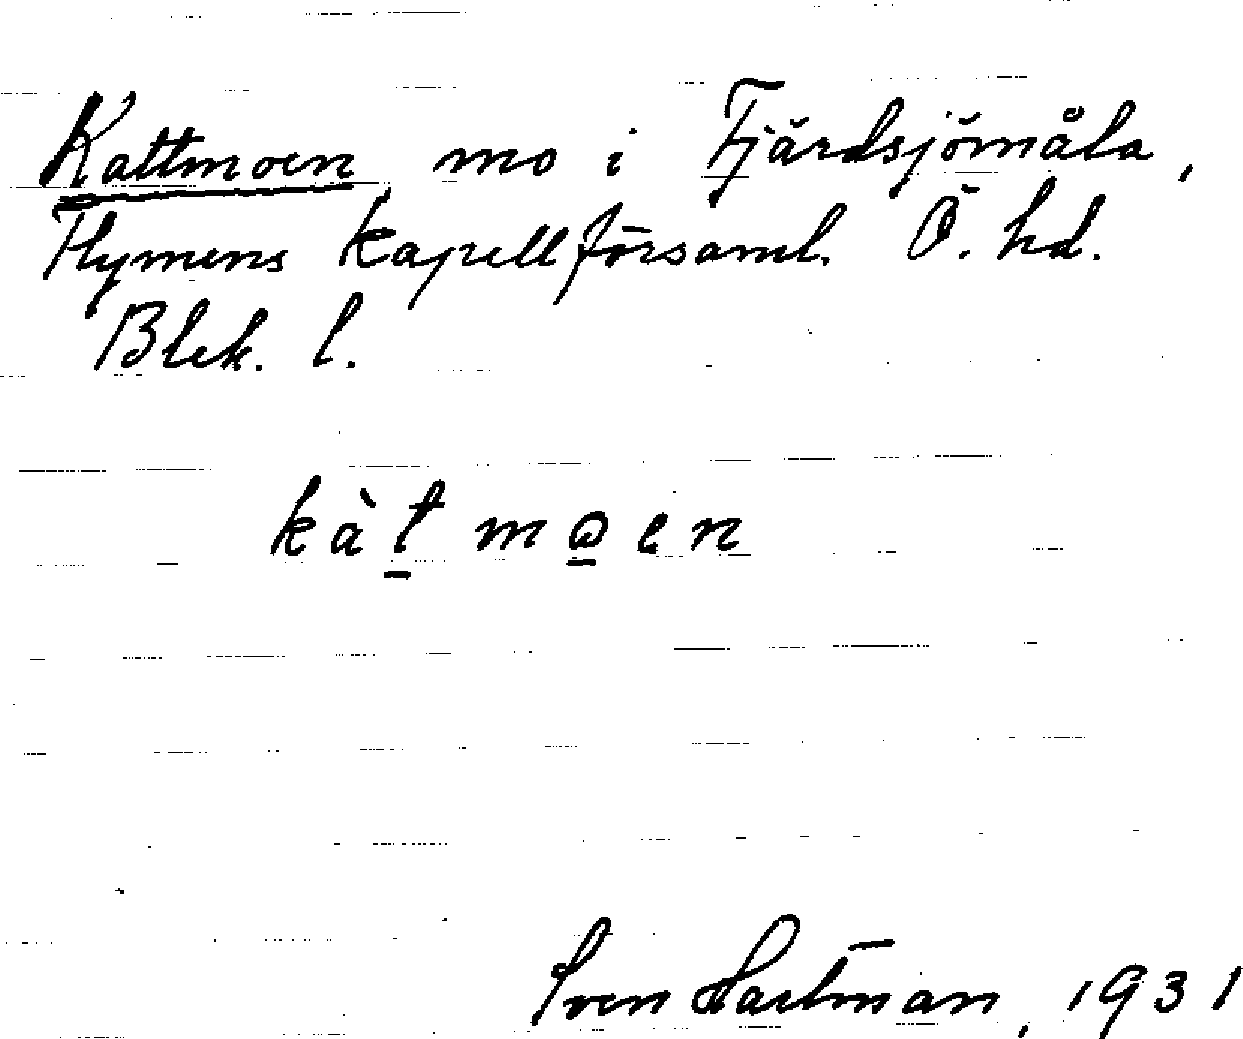 Kattmoen, mo i Fjärdsjömåla,
Flymens kapellförsaml. Ö. hd.
Blek. l.
kàt̠ mo̠en
Sven Hartman, 1931